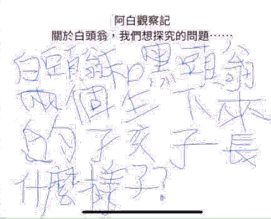 阿白觀察記
關於白頭翁，我們想探究的問題……
白頭翁和黑頭翁
兩個生下來
的子孩子長
什麼樣子？